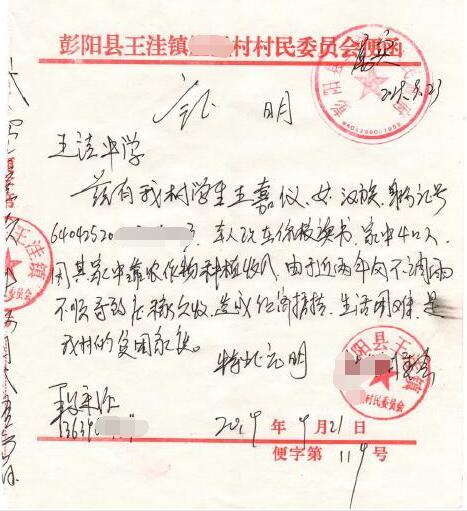 彭阳县王洼镇村村民委员会便函
属实
2019.9.23
证 明
王洼中学
兹有我村学生王嘉仪、女、汉族、身份证号
64042520 3,本人现在你校读书,家中4口人
因其家中靠农作物种植收入,由于近两年风不调雨
不顺导致庄稼欠收,造成经济拮据,生活困难,是
我村的贫困家庭。
特此证明
彭阳县王洼镇
村民委员会
13639
2019 年 9 月 21 日
便字第 119 号
王洼镇
员会